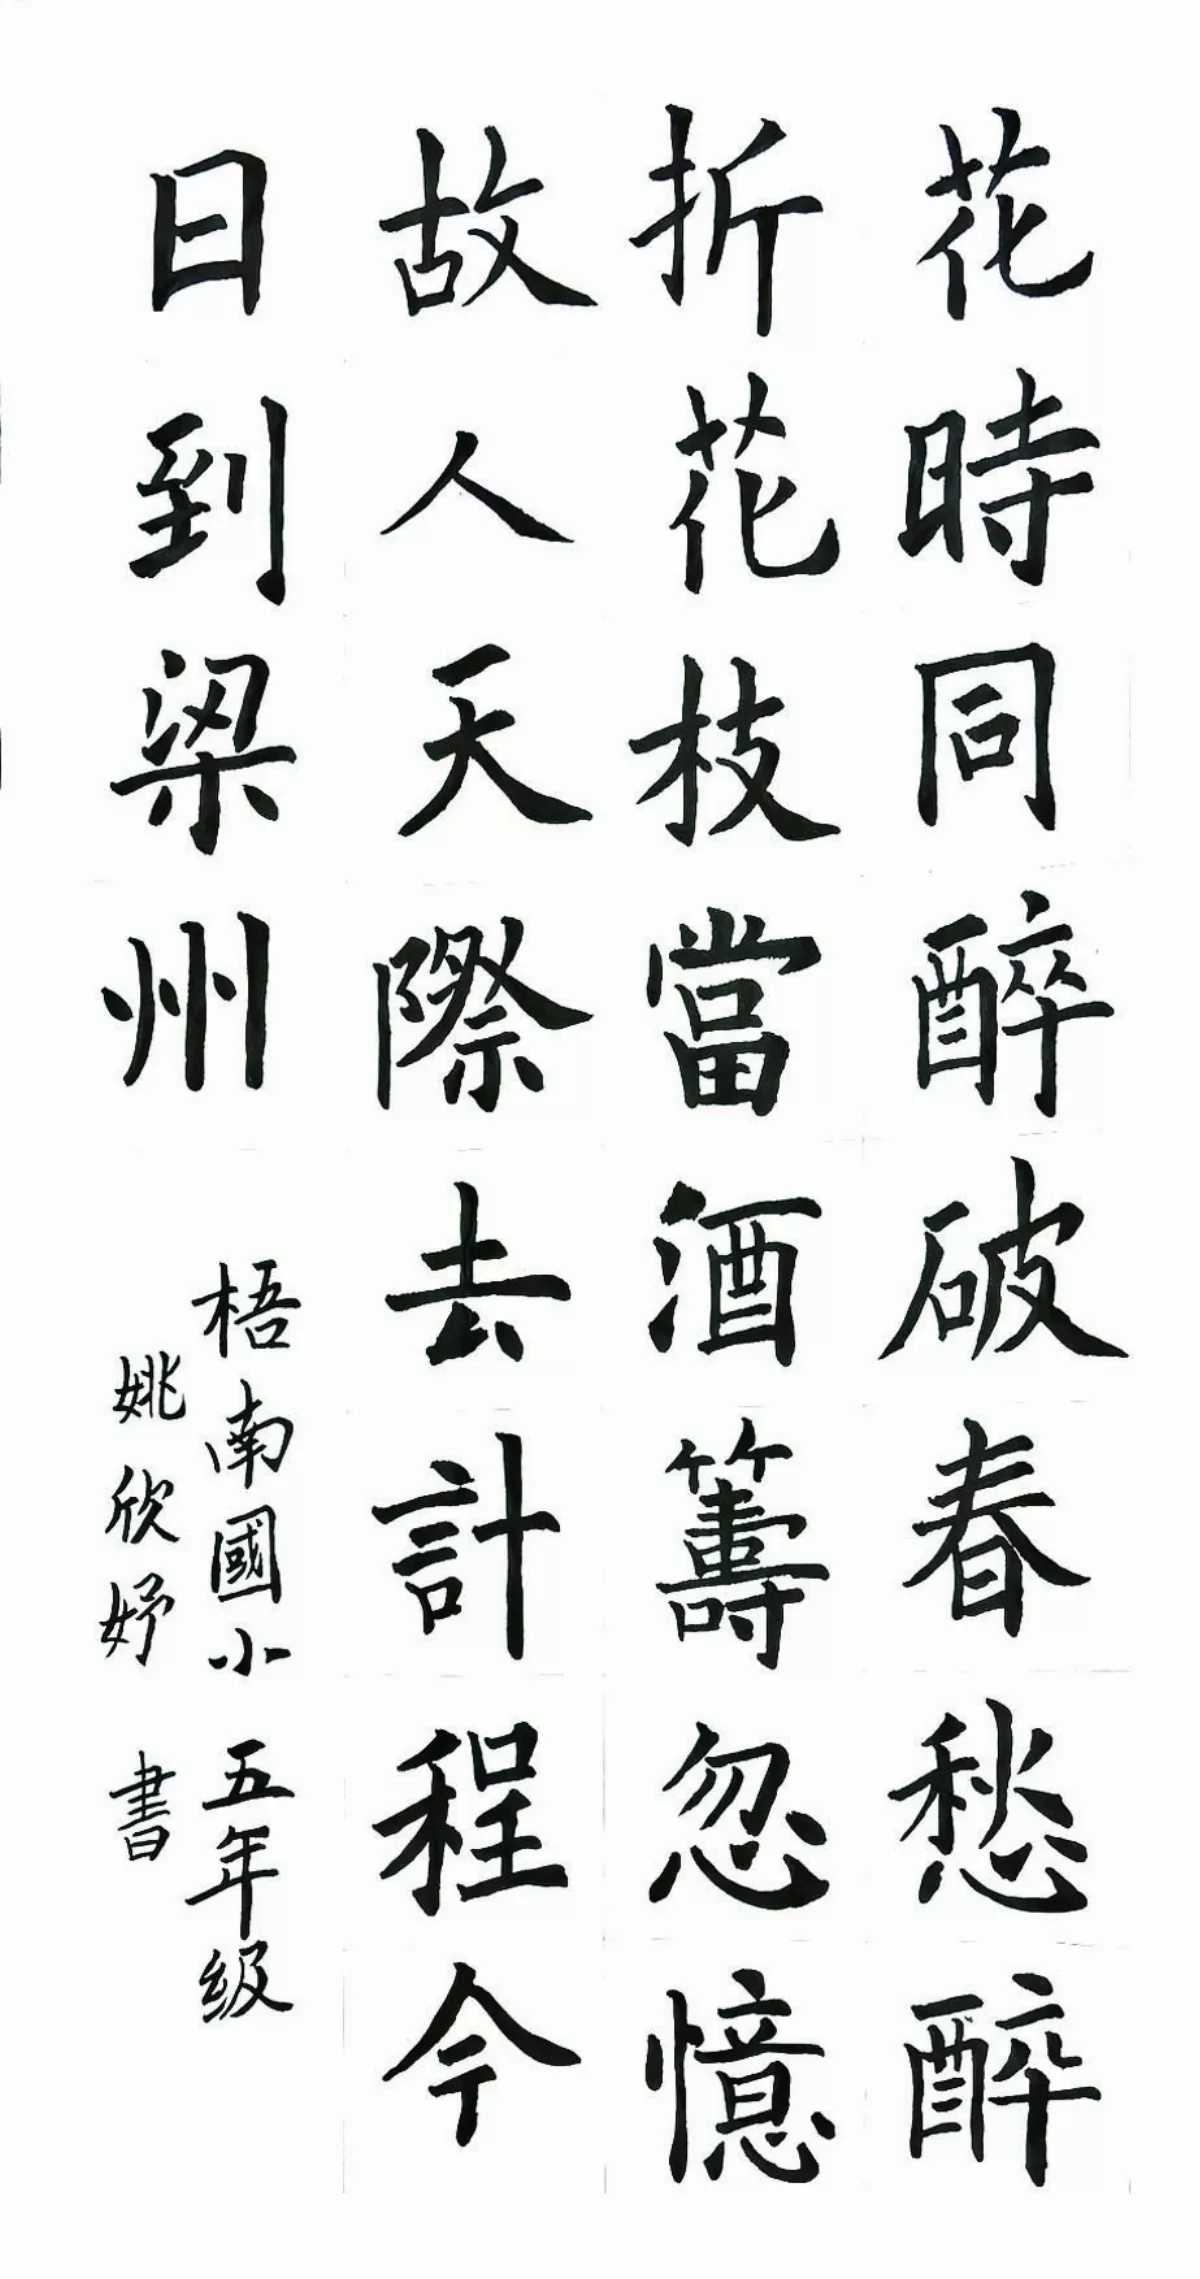 花時同醉破春愁醉
折花枝當酒籌忽憶
故人天際去計程今
日到梁州
梧南國小 五年級
姚欣妤 書